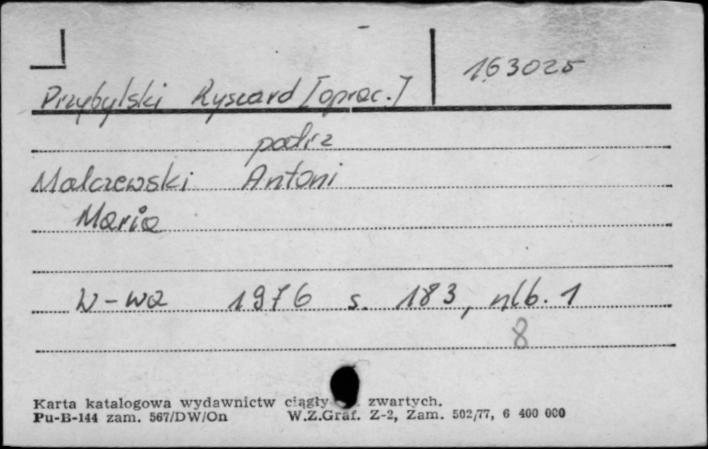 163025
Przybylski Ryszard [oprac.]
podrz
Malczewski Antoni
Maria
W-wa 1976 s. 183, nlb. 1
8
Karta katalogowa wydawnictw ciągły zwartych.
Pu-B-144 zam. 567/DW/On W.Z.Graf. Z-2, Zam. 502/77, 6 400 000